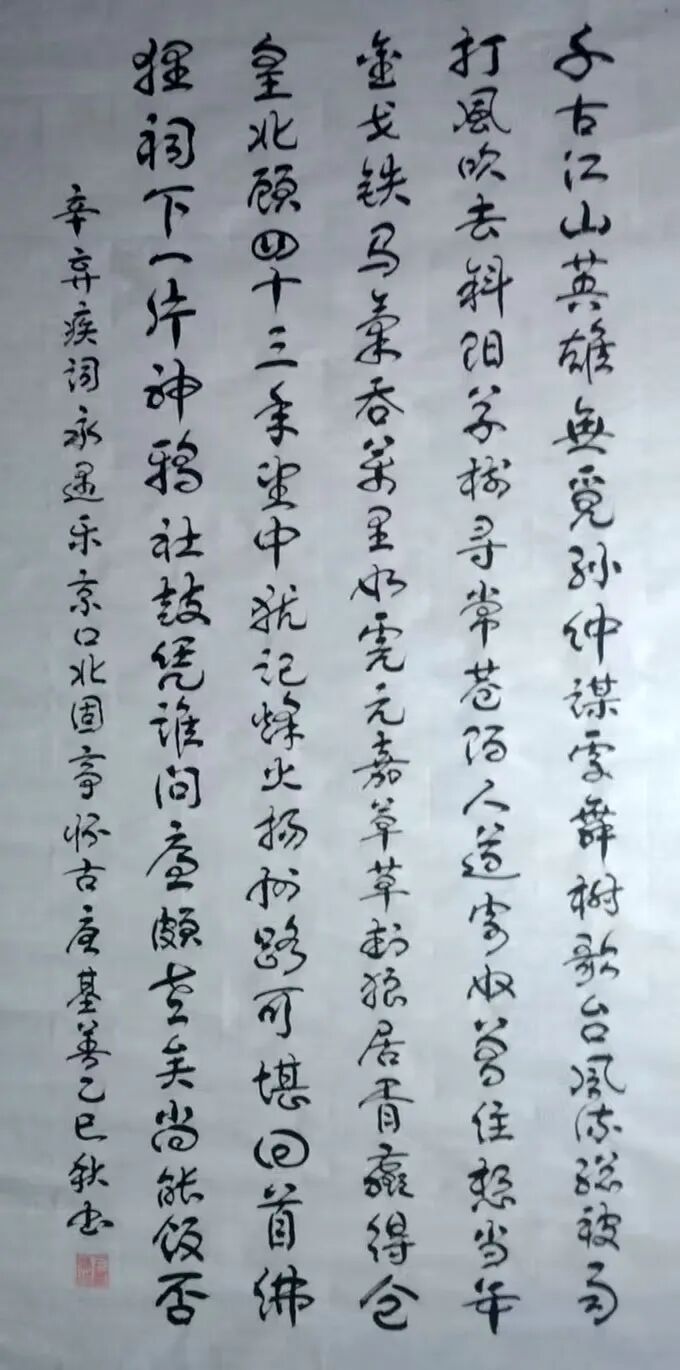 千古江山英雄無覓孙仲謀處舞榭歌台風流總被雨
打風吹去斜阳草樹寻常巷陌人道寄奴曾住想当年
金戈铁马氣吞萬里如虎元嘉草草封狼居胥赢得仓
皇北顾四十三年望中犹记烽火扬州路可堪回首佛
狸祠下一片神鸦社鼓凭谁问廉颇老矣尚能饭否
辛弃疾词永遇乐京口北固亭怀古基善乙巳秋书